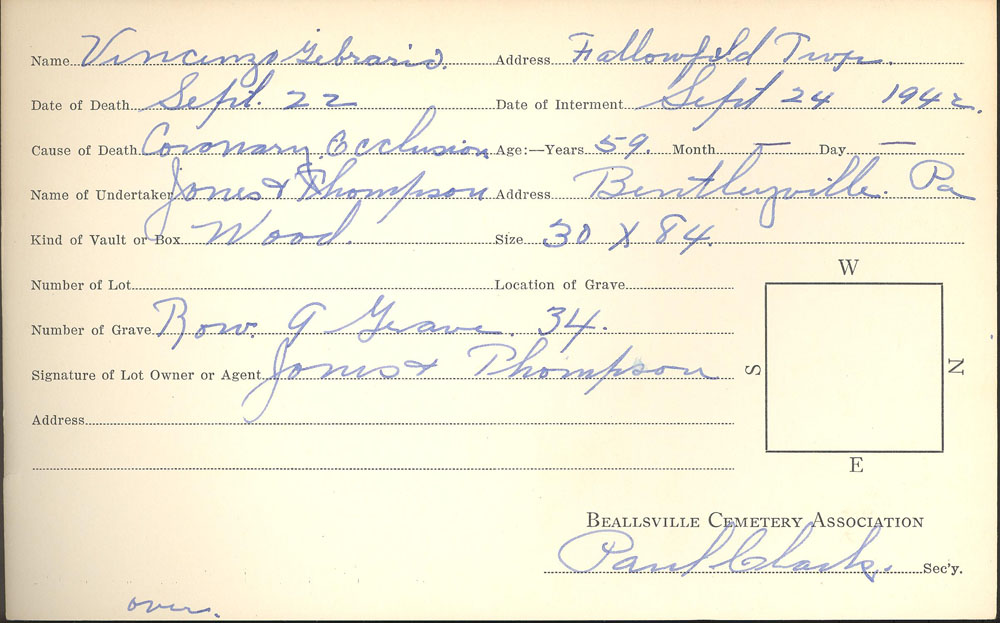 Name Vincenzo Gebrario. Address Fallowfield Twp.
Date of Death Sept. 22 Date of Interment Sept 24 1942.
Cause of Death Coronary Occlusion Age:—Years 59. Month — Day —
Name of Undertaker Jones & Thompson Address Bentleyville. Pa
Kind of Vault or Box Wood. Size 30 X 84.
W
Number of Lot Location of Grave
Number of Grave Row. G Grave. 34.
Signature of Lot Owner or Agent Jones & Thompson
S N
Address
E
BEALLSVILLE CEMETERY ASSOCIATION
Paul Clark. Sec'y.
over.